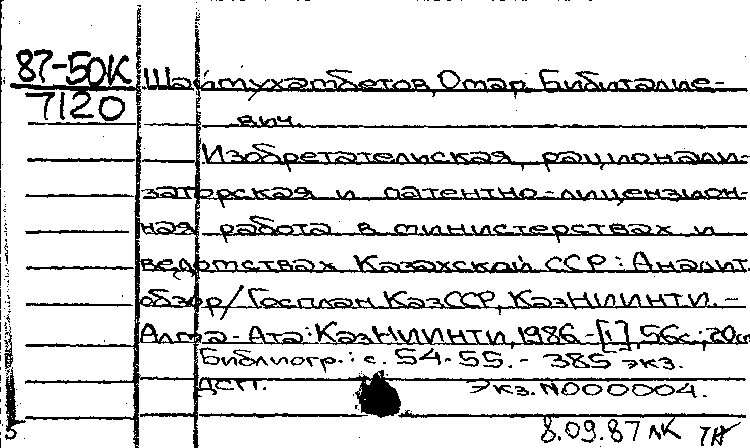 87-50К Шаймухамбетов, Омар Бибиталие-
7120 вич.
Изобретательская, рационали-
заторская и патентно-лицензион-
ная работа в министерствах и
ведомствах Казахской ССР: Аналит.
обзор/Госплан КазССР, КазНИИНТИ.-
Алма-Ата: КазНИИНТИ, 1986.-[1], 56с.; 20см
Библиогр.: с. 54-55.- 385 экз.
ДСП. Экз.N000004.
5 8.09.87